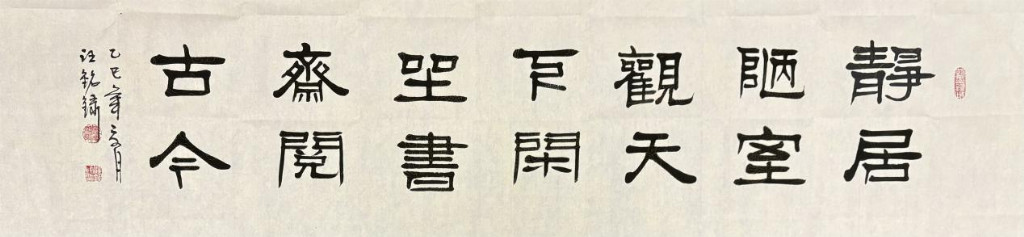 靜居
陋室
觀天
下閑
坐書
齋閱
古今
乙巳年月
汪銘